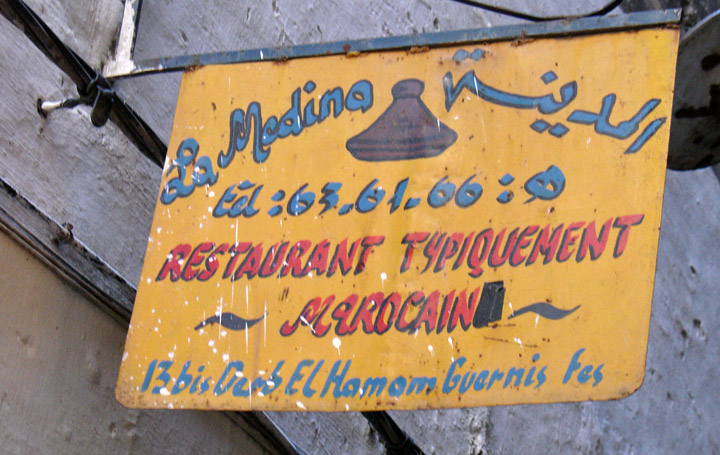 La Medina المدينة
tél : 63.61.66 : ه
RESTAURANT TYPIQUEMENT
~ MAROCAIN ~
13 bis Derb El Hamam Guernis Fes